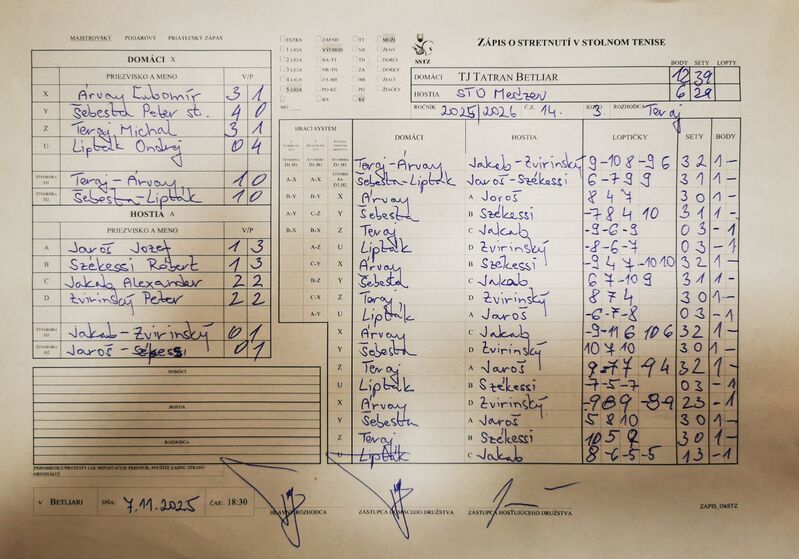 MAJSTROVSKÝ POHÁROVÝ PRIATEĽSKÝ ZÁPAS
DOMÁCI X
PRIEZVISKO A MENO V/P
X Árvay Ľubomír 3 1
Y Šebesta Peter st. 4 0
Z Teraj Michal 3 1
U Lipták Ondrej 0 4
ŠTVORHRA D1 Teraj-Árvay 1 0
ŠTVORHRA D2 Šebesta-Lipták 1 0
HOSTIA A
PRIEZVISKO A MENO V/P
A Jaroš Jozef 1 3
B Székessi Róbert 1 3
C Jakab Alexander 2 2
D Zvirinský Peter 2 2
ŠTVORHRA H1 Jakab-Zvirinský 0 1
ŠTVORHRA H2 Jaroš- 0 1
DOMÁCI
HOSTIA
ROZHODCA
PRIPOMIENKY/PROTESTY (AK NEPOSTAČUJE PRIESTOR, POUŽITE ZADNÚ STRANU ORIGINÁLU)
V BETLIARI DŇA: 7.11.2025 ČAS: 18:30
EXTRA ZÁPAD TT MUŽI
1.LIGA VÝCHOD NR ŽENY
2.LIGA BA-TT TN DORCI
3.LIGA NR-TN ZA DORKY
4.LIGA ZA-BB BB ŽIACI
5.LIGA PO-KE PO ŽIAČKY
BA KE
MO
SSTZ
ZÁPIS O STRETNUTÍ V STOLNOM TENISE
BODY SETY LOPTY
DOMÁCI TJ TATRAN BETLIAR 12 39
HOSTIA STO Medzev 6 29
ROČNÍK 2025/2026 Č.Z. 14. KOLO 3 ROZHODCA Teraj
HRACÍ SYSTÉM DOMÁCI HOSTIA LOPTIČKY SETY BODY
Teraj-Árvay Jakab-Zvirinský 9 -10 8 -9 6 3 2 1 -
Šebesta-Lipták Jaroš-Székessi 6 -7 9 9 3 1 1 -
A-X A-X X Árvay A Jaroš 8 4 7 3 0 1 -
B-Y B-Y Y Šebesta B Székessi -7 8 4 10 3 1 1 -
A-Y C-Z Z Teraj C Jakab -9 -6 -9 0 3 - 1
A-Z U Lipták D Zvirinský -8 -6 -7 0 3 - 1
C-Y X Árvay B Székessi -9 4 7 -10 10 3 2 1 -
B-Z Y Šebesta C Jakab 6 7 -10 9 3 1 1 -
C-X Z Teraj D Zvirinský 8 7 4 3 0 1 -
A-Y U Lipták A Jaroš -6 -7 -8 0 3 - 1
X Árvay C Jakab -9 -11 6 10 6 3 2 1 -
Y Šebesta D Zvirinský 10 7 10 3 0 1 -
Z Teraj A Jaroš 9 -7 -7 9 4 3 2 1 -
U Lipták B Székessi -7 -5 -7 0 3 - 1
X Árvay D Zvirinský -9 8 9 -8 -9 2 3 - 1
Y Šebesta A Jaroš 5 8 10 3 0 1 -
Z Teraj B Székessi 10 5 9 3 0 1 -
U Lipták C Jakab 8 -6 -5 -5 1 3 - 1
HLAVNÝ ROZHODCA ZÁSTUPCA DOMÁCEHO DRUŽSTVA ZÁSTUPCA HOSŤUJÚCEHO DRUŽSTVA
ZAPIS_O8STZ